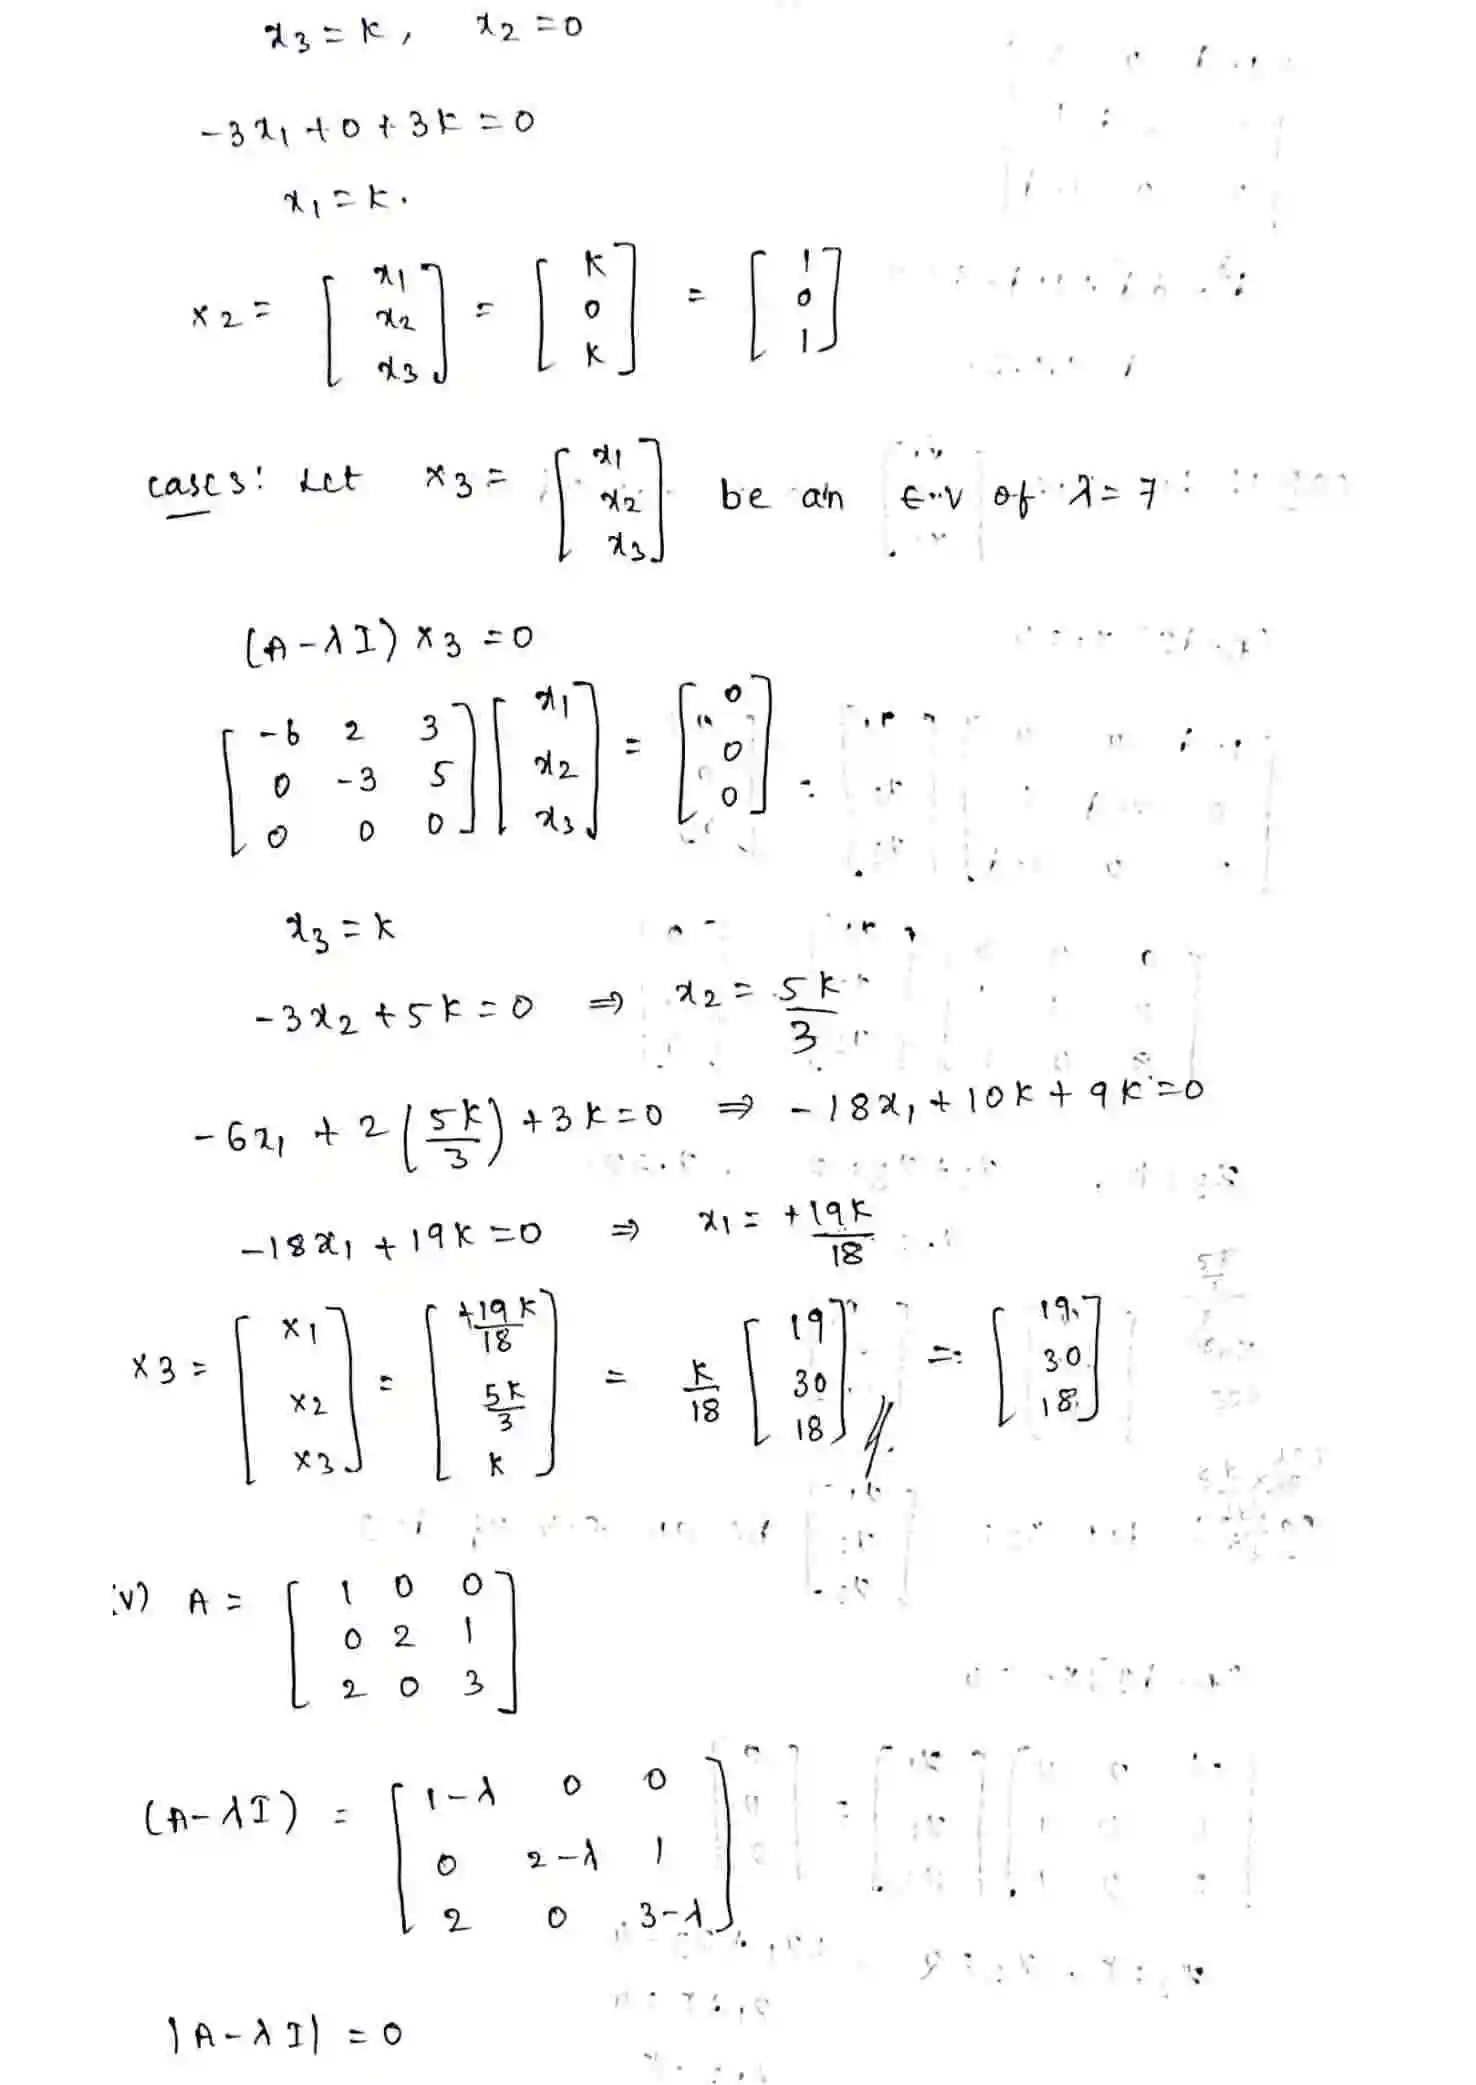 x3 = k, x2 = 0
-3x1 + 0 + 3k = 0
x1 = k.
x2 = [x1 x2 x3] = [k 0 k] = [1 0 1]
case3: Let x3 = [x1 x2 x3] be an E.V of λ = 7
(A-λI) x3 = 0
[-6 2 3
0 -3 5
0 0 0] [x1 x2 x3] = [0 0 0]
x3 = k
-3x2 + 5k = 0 ⇒ x2 = 5k/3
-6x1 + 2(5k/3) + 3k = 0 ⇒ -18x1 + 10k + 9k = 0
-18x1 + 19k = 0 ⇒ x1 = +19k/18
x3 = [x1 x2 x3] = [+19k/18 5k/3 k] = k/18 [19 30 18] = [19 30 18]
iv) A = [1 0 0
0 2 1
2 0 3]
(A-λI) = [1-λ 0 0
0 2-λ 1
2 0 3-λ]
|A-λI| = 0